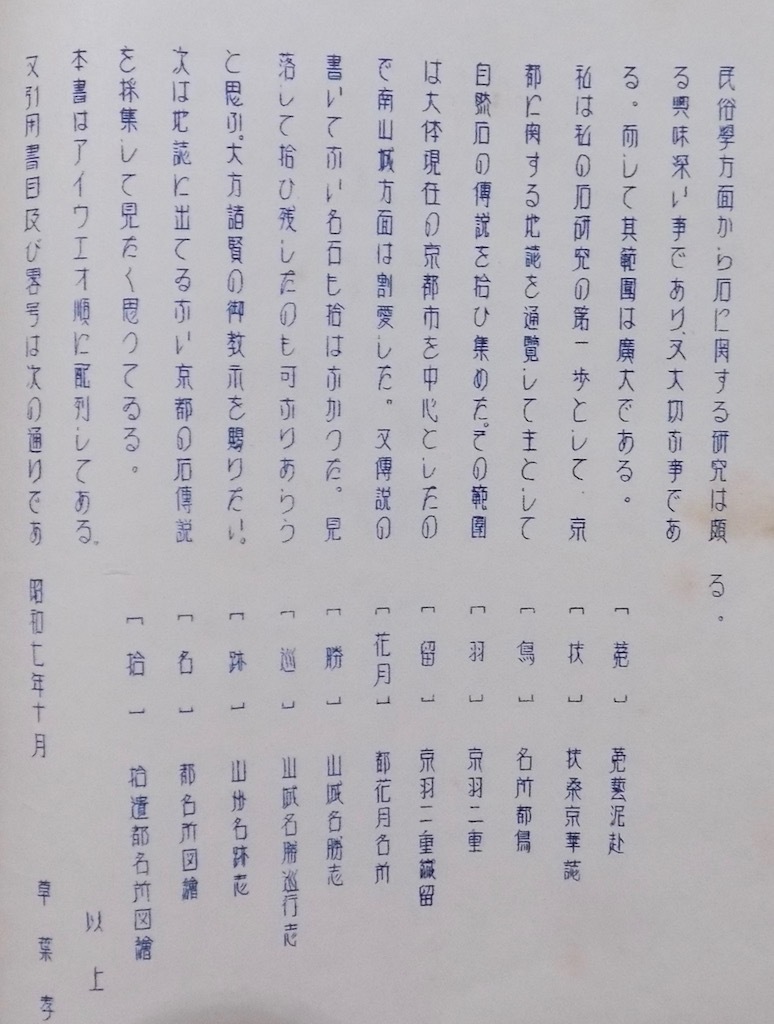 民俗學方面から石に関する研究は頗
る興味深い事であり、又大切な事であ
る。而して其範圍は廣大である。
私は私の石研究の第一歩として、京
都に関する地誌を通覧して主として
自然石の傳説を拾ひ集めた。その範圍
は大体現在の京都市を中心としたの
で南山城方面は割愛した。又傳説の
書いてない名石も拾はなかつた。見
落して拾ひ残したのも可なりあらう
と思ふ。大方諸賢の御教示を賜りたい。
次は地誌に出てゐない京都の石傳説
を採集して見たく思つてゐる。
本書はアイウエオ順に配列してある。
又引用書目及び畧号は次の通りであ
る。
[菟] 菟藝泥赴
[扶] 扶桑京華誌
[鳥] 名所都鳥
[羽] 京羽二重
[留] 京羽二重織留
[花月] 都花月名所
[勝] 山城名勝志
[巡] 山城名勝巡行志
[跡] 山州名跡志
[名] 都名所図繪
[拾] 拾遺都名所図繪
以上
昭和七年十月
草葉孝